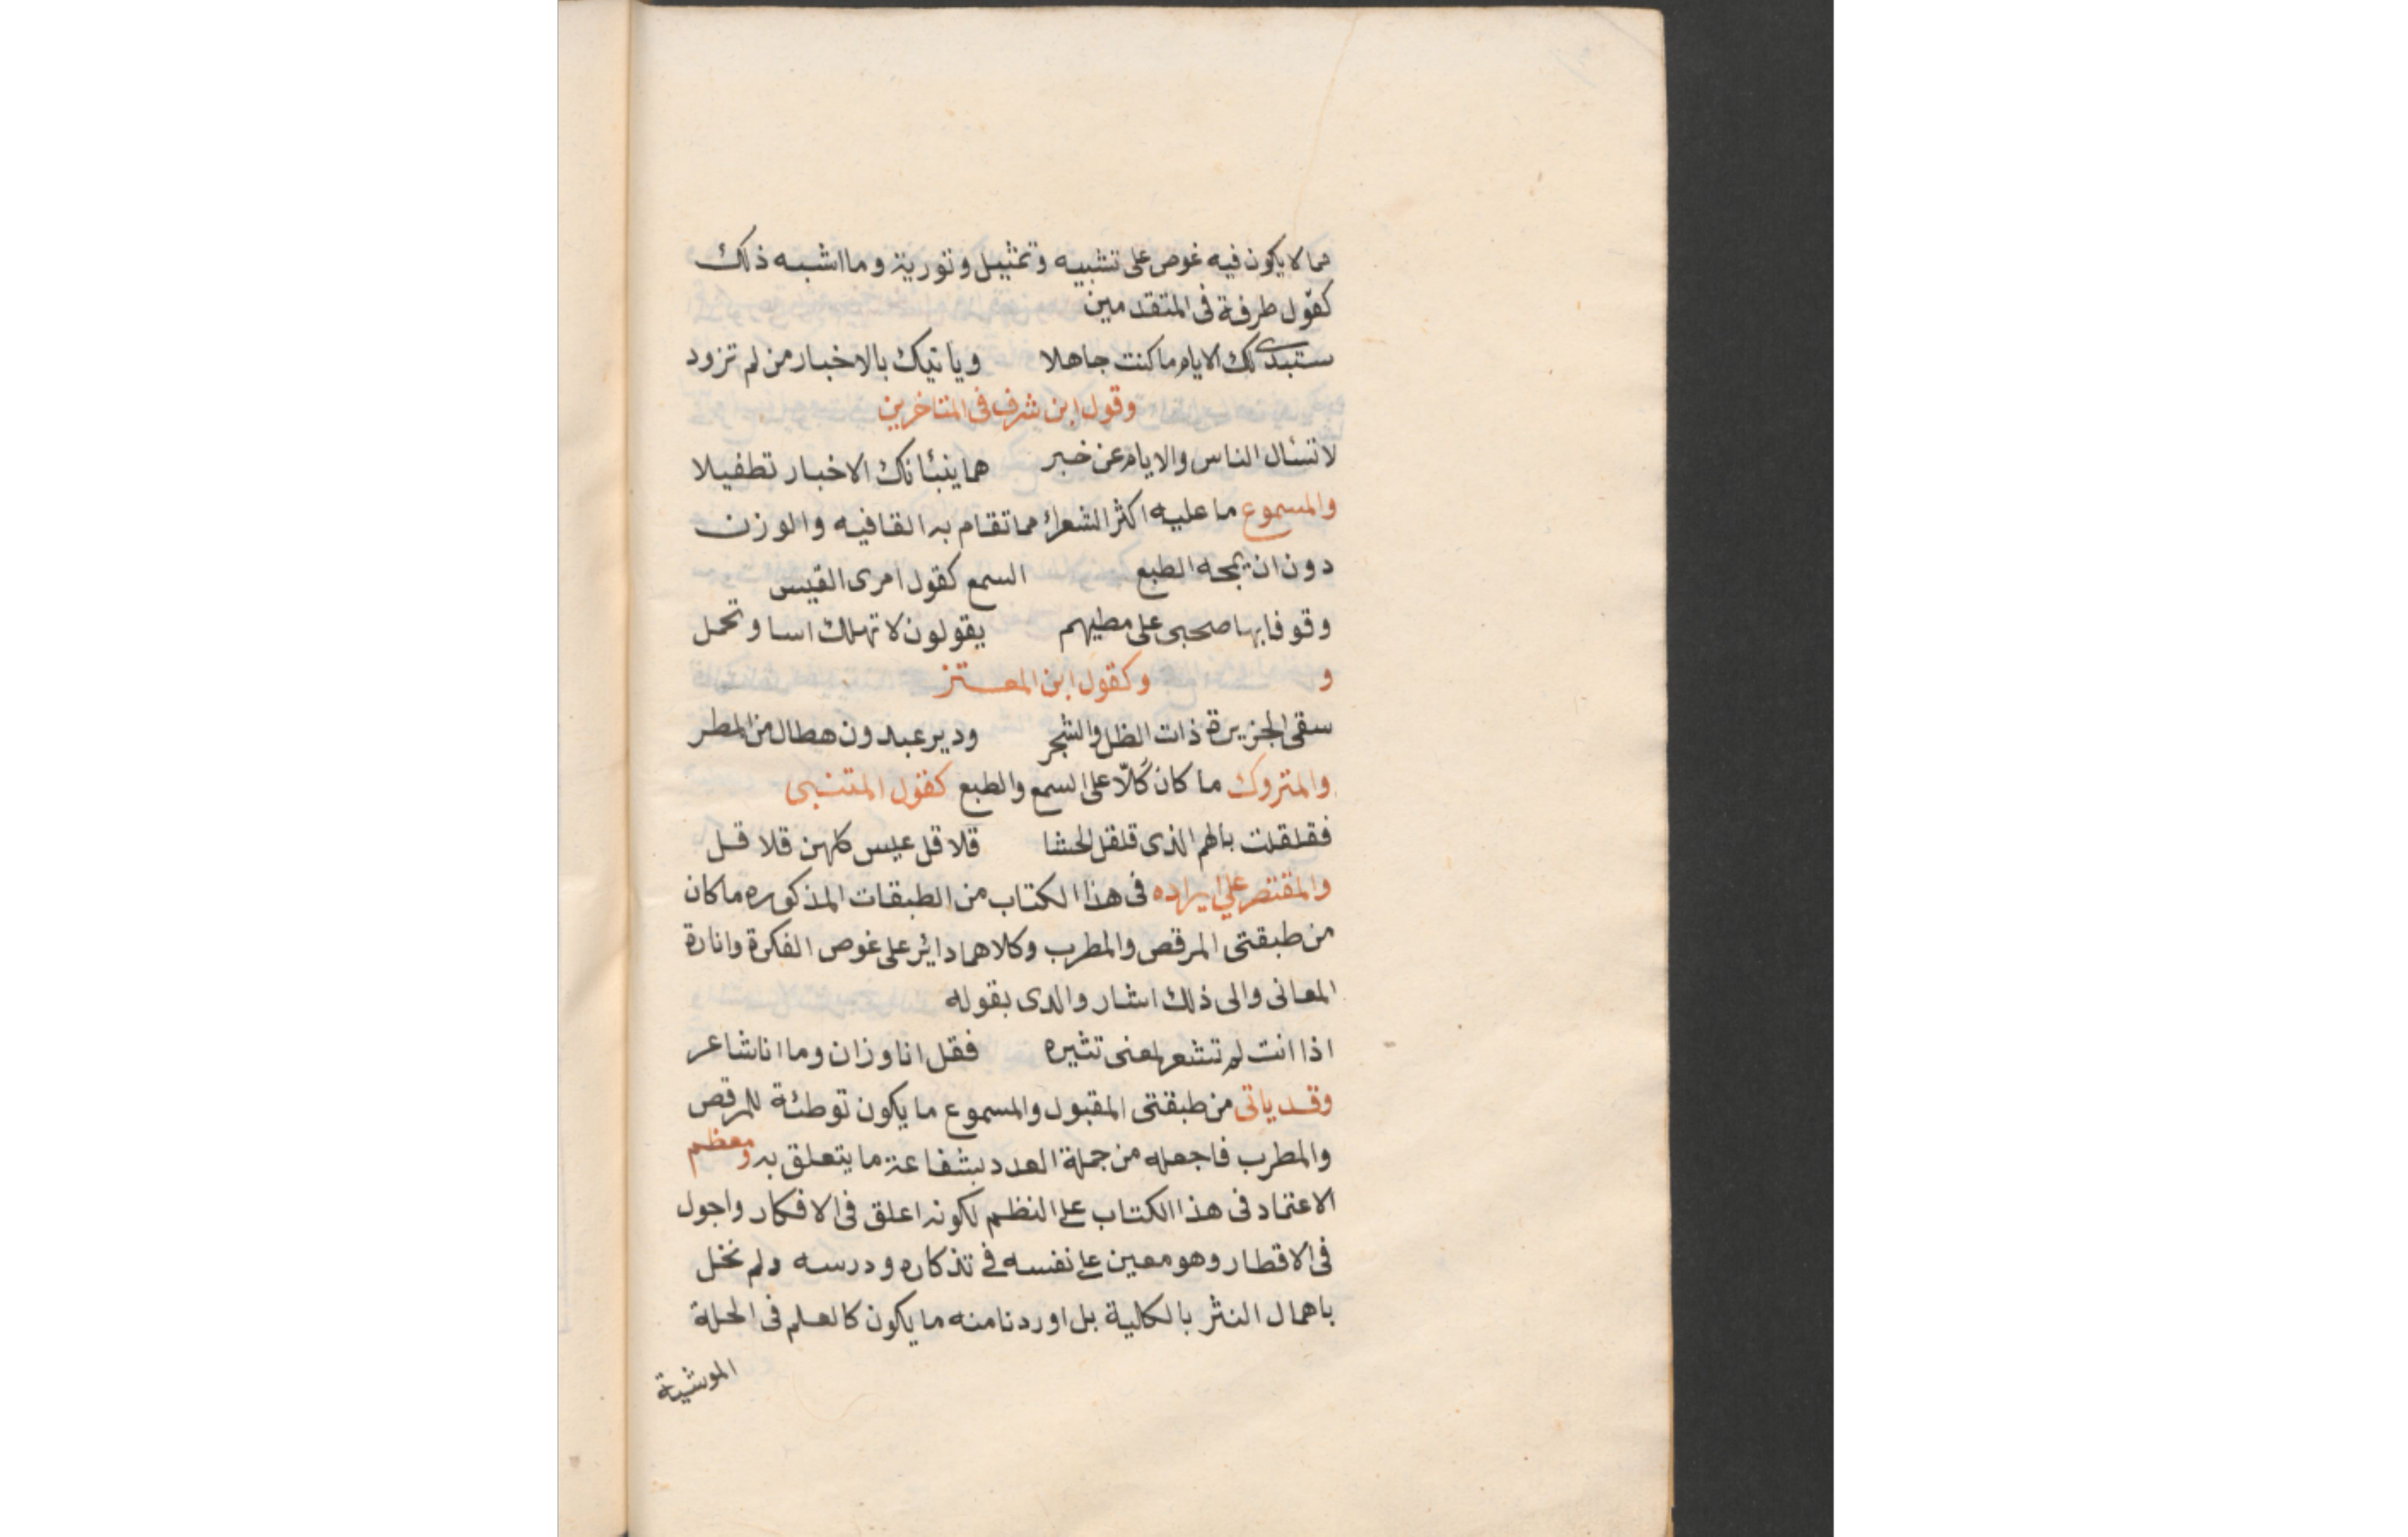 مما لا يكون فيه غوص على تشبيه وتمثيل وتورية وما اشبه ذلك
كقول طرفة فى المتقدمين
ستبدى لك الايام ما كنت جاهلا وياتيك بالاخبار من لم تزود
وقول ابن شرف فى المتاخرين
لا تسئال الناس والايام عن خبر هما ينبئانك الاخبار تطفيلا
والمسموع ما عليه اكثر الشعراء مما تقام به القافيه والوزن
دون ان يمجه الطبع السمع كقول امرى القيس
وقوفا بها صحبى على مطيهم يقولون لا تهلك اسا وتحمل
و وكقول ابن المعتز
سقى الجزيرة ذات الظل والشجر ودير عبدون هطال من المطر
والمتروك ما كان كَلّا على السمع والطبع كقول المتنبى
فقلقلت بالهم الذى قلقل الحشا قلاقل عيس كلهن قلاقل
والمقتصر على ايراده فى هذا الكتاب من الطبقات المذكوره ما كان
من طبقتى المرقص والمطرب وكلاهما دائر على غوص الفكرة واثارة
المعانى والى ذلك اشار والدى بقوله
اذا انت لم تشعر لمعنى تثيره فقل انا وزان وما انا شاعر
وقد ياتى من طبقتى المقبول والمسموع ما يكون توطئة للمرقص
والمطرب فاجعله من جملة العدد بشفاعة ما يتعلق به ومعظم
الاعتماد فى هذا الكتاب على النظم لكونه اعلق فى الافكار واجول
فى الاقطار وهو معين على نفسه فى تذكاره ودرسه ولم نخل
باهمال النثر بالكلية بل اوردنا منه ما يكون كالعلم فى الحلة
الموشية